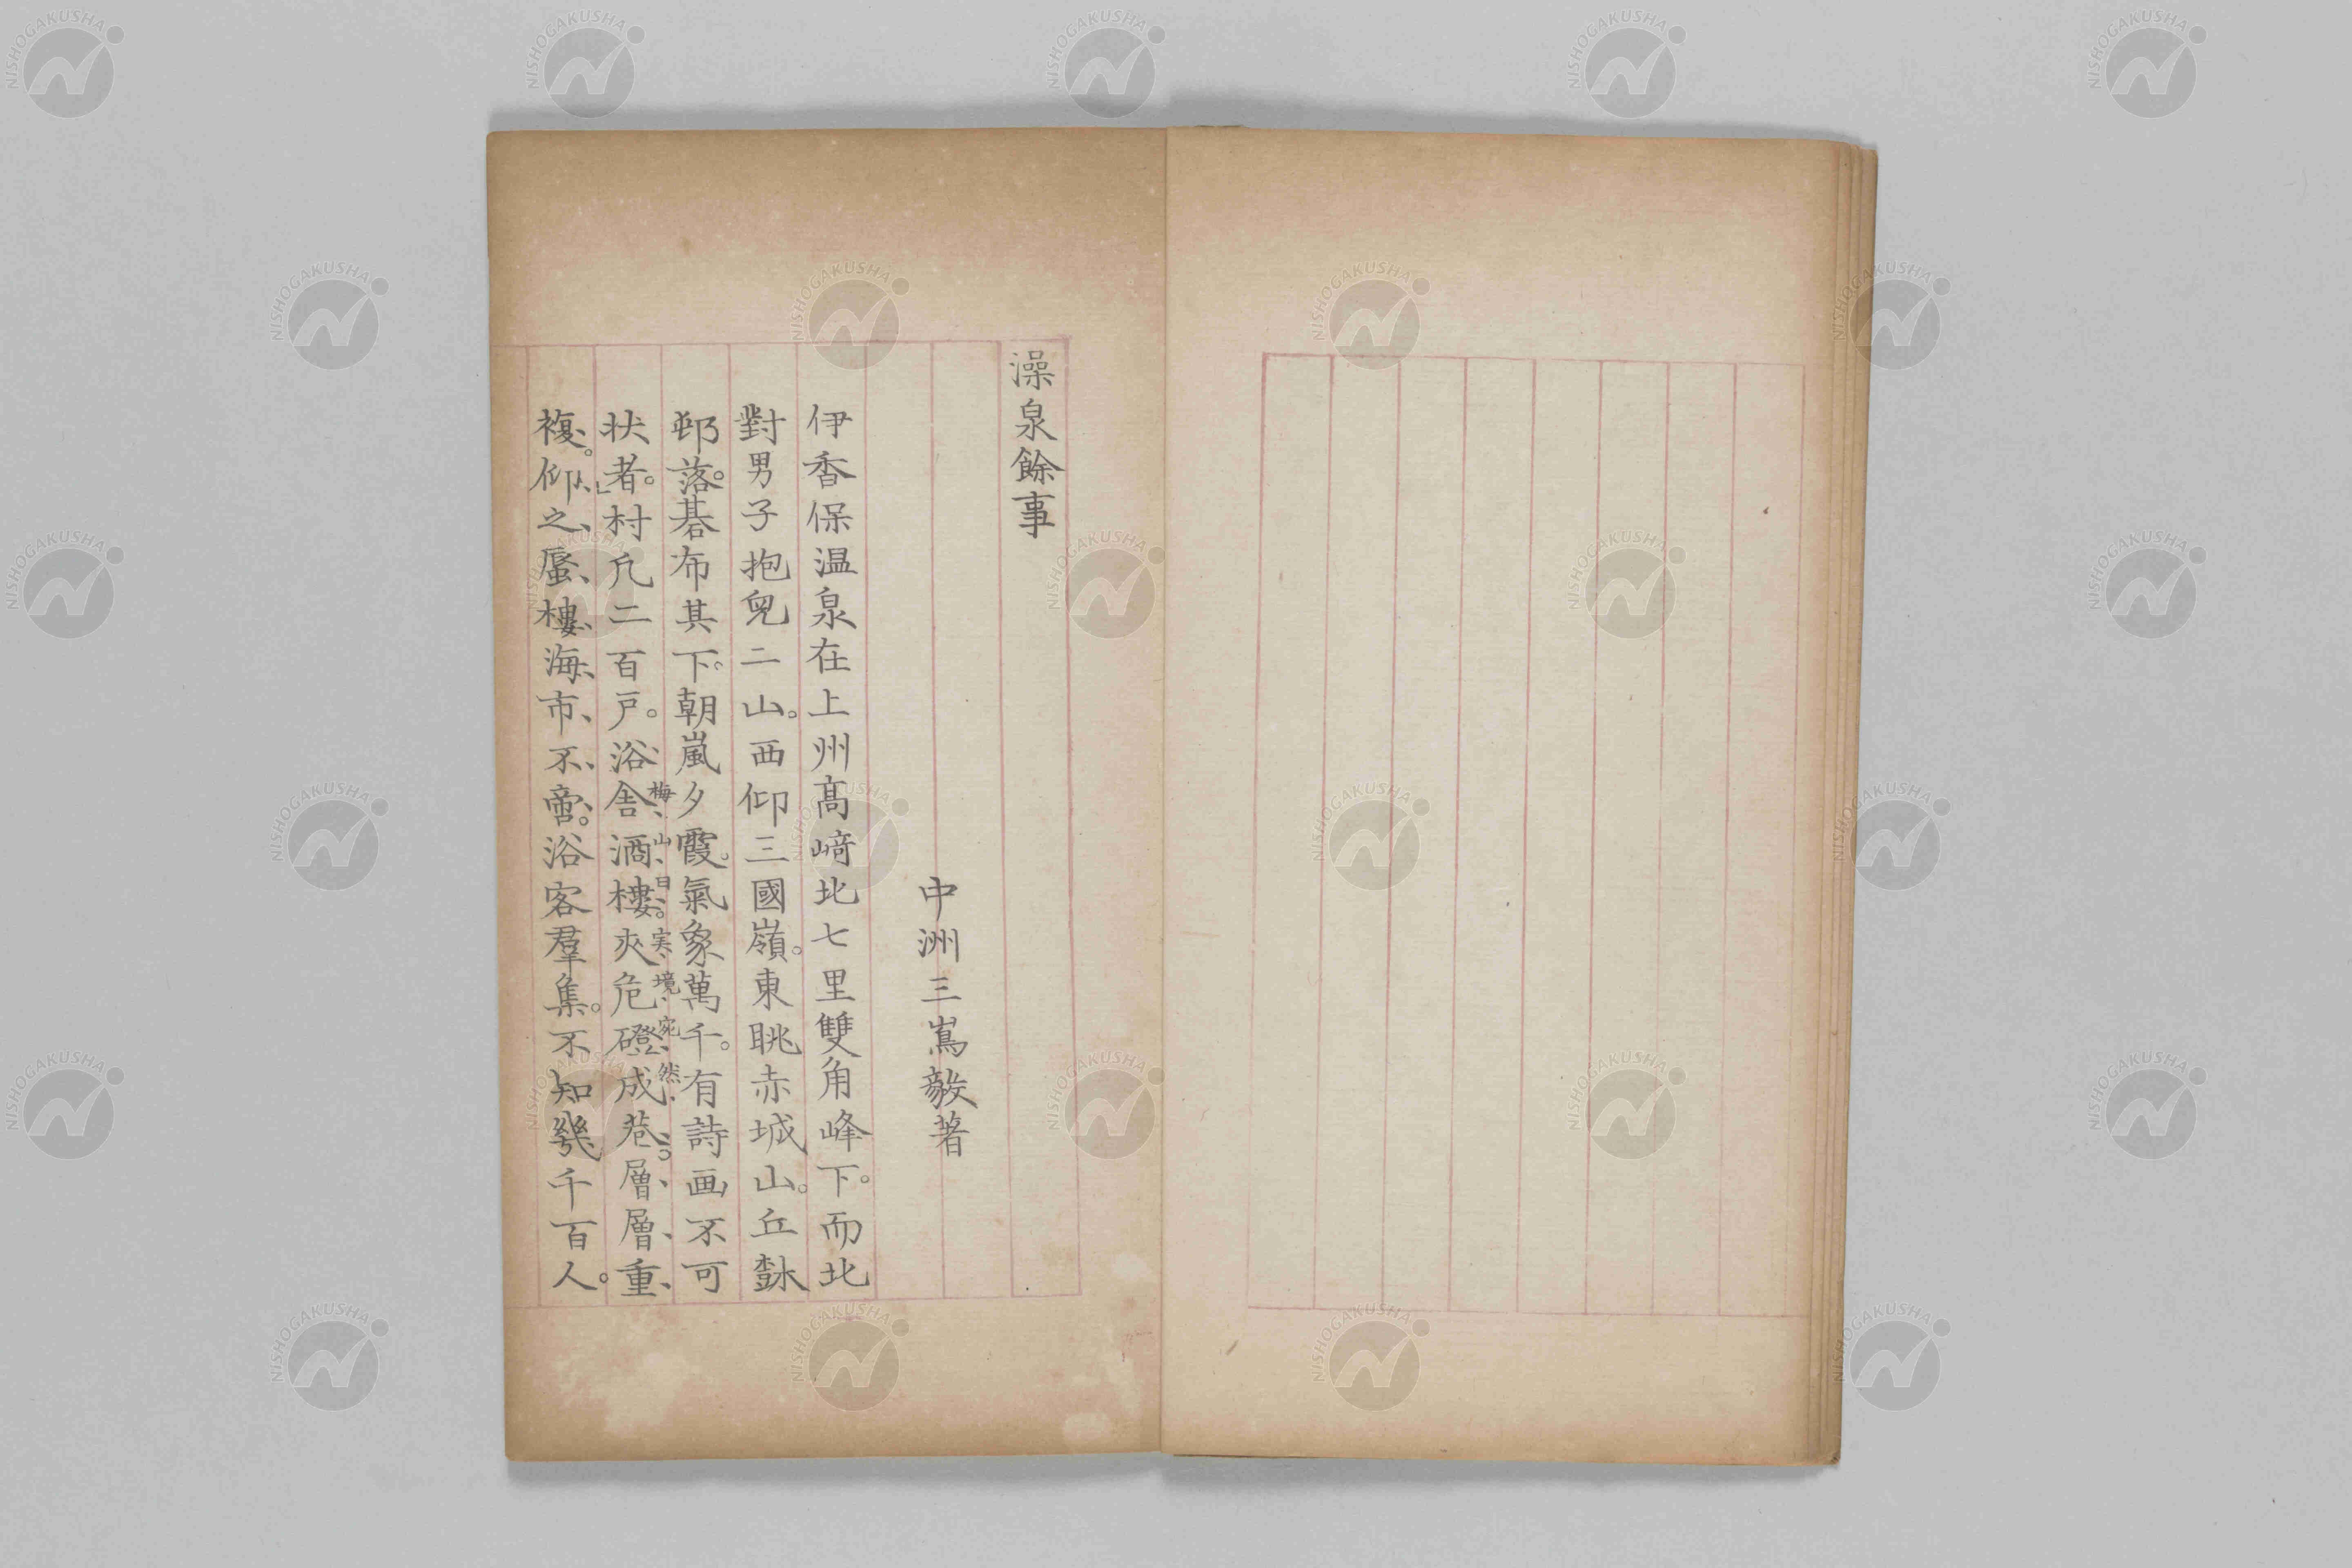 澡泉餘事
中洲三嶌毅著
伊香保温泉在上州髙﨑北七里雙角峰下。而北
對男子抱兒二山。西仰三國嶺。東眺赤城山。丘
邨落。碁布其下。朝嵐夕霞。氣象萬千。有詩画不可
梅山曰。実境宛然
状者。」村凡二百戸。浴舎酒樓。夾危磴成巷。層層重
複。仰之蜃樓海市不啻。浴客羣集。不知幾千百人。
NISHOGAKUSHA